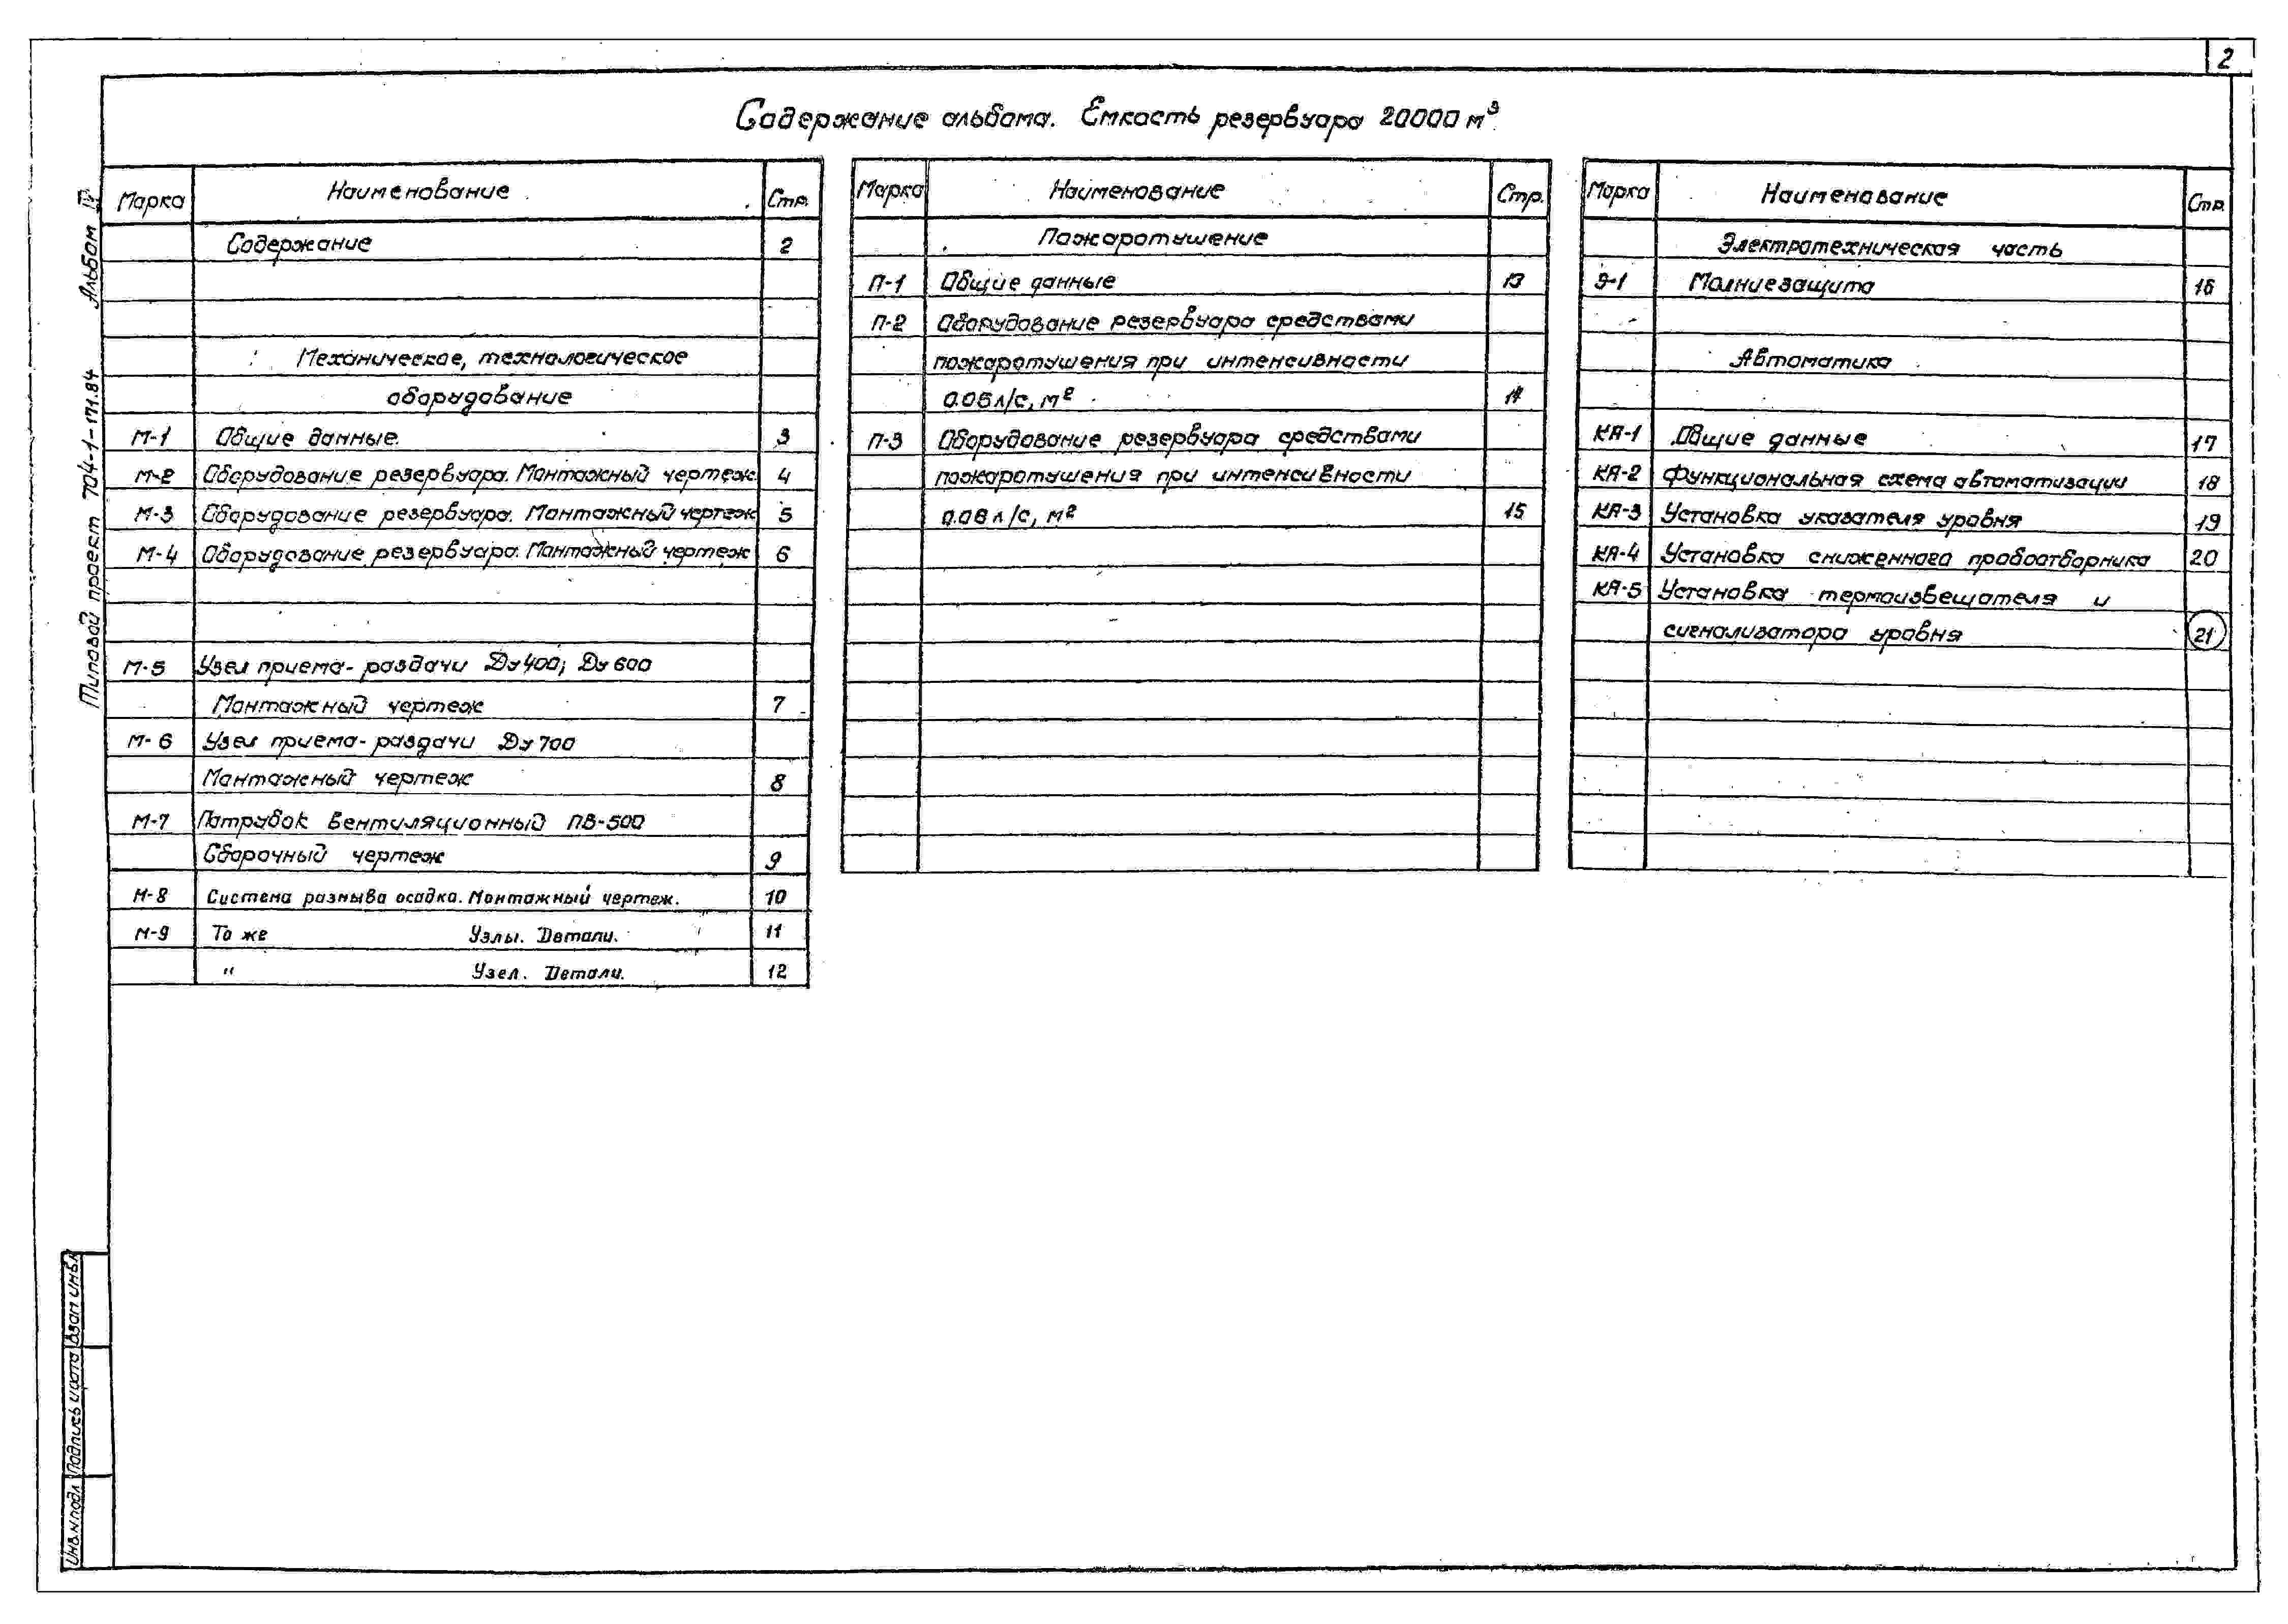 2
Содержание альбома. Емкость резервуара 20000 м³
Альбом IV
Типовой проект 704-1-171.84
Марка Наименование Стр.
Содержание 2
Механическое, технологическое
оборудование
М-1 Общие данные. 3
М-2 Оборудование резервуара. Монтажный чертеж. 4
М-3 Оборудование резервуара. Монтажный чертеж 5
М-4 Оборудование резервуара. Монтажный чертеж 6
М-5 Узел приема-раздачи Ду 400; Ду 600
Монтажный чертеж 7
М-6 Узел приема-раздачи Ду 700
Монтажный чертеж 8
М-7 Патрубок вентиляционный ПВ-500
Сборочный чертеж 9
М-8 Система размыва осадка. Монтажный чертеж. 10
М-9 То же Узлы. Детали. 11
" Узел. Детали. 12
Марка Наименование Стр.
Пожаротушение
П-1 Общие данные 13
П-2 Оборудование резервуара средствами
пожаротушения при интенсивности
0.05 л/с, м² 14
П-3 Оборудование резервуара средствами
пожаротушения при интенсивности
0.08 л/с, м² 15
Марка Наименование Стр.
Электротехническая часть
Э-1 Молниезащита 16
Автоматика
КА-1 Общие данные 17
КА-2 Функциональная схема автоматизации 18
КА-3 Установка указателя уровня 19
КА-4 Установка сниженного пробоотборника 20
КА-5 Установка термоизвещателя и
сигнализатора уровня 21
Инв.№подл. Подпись и дата Взам инв.№